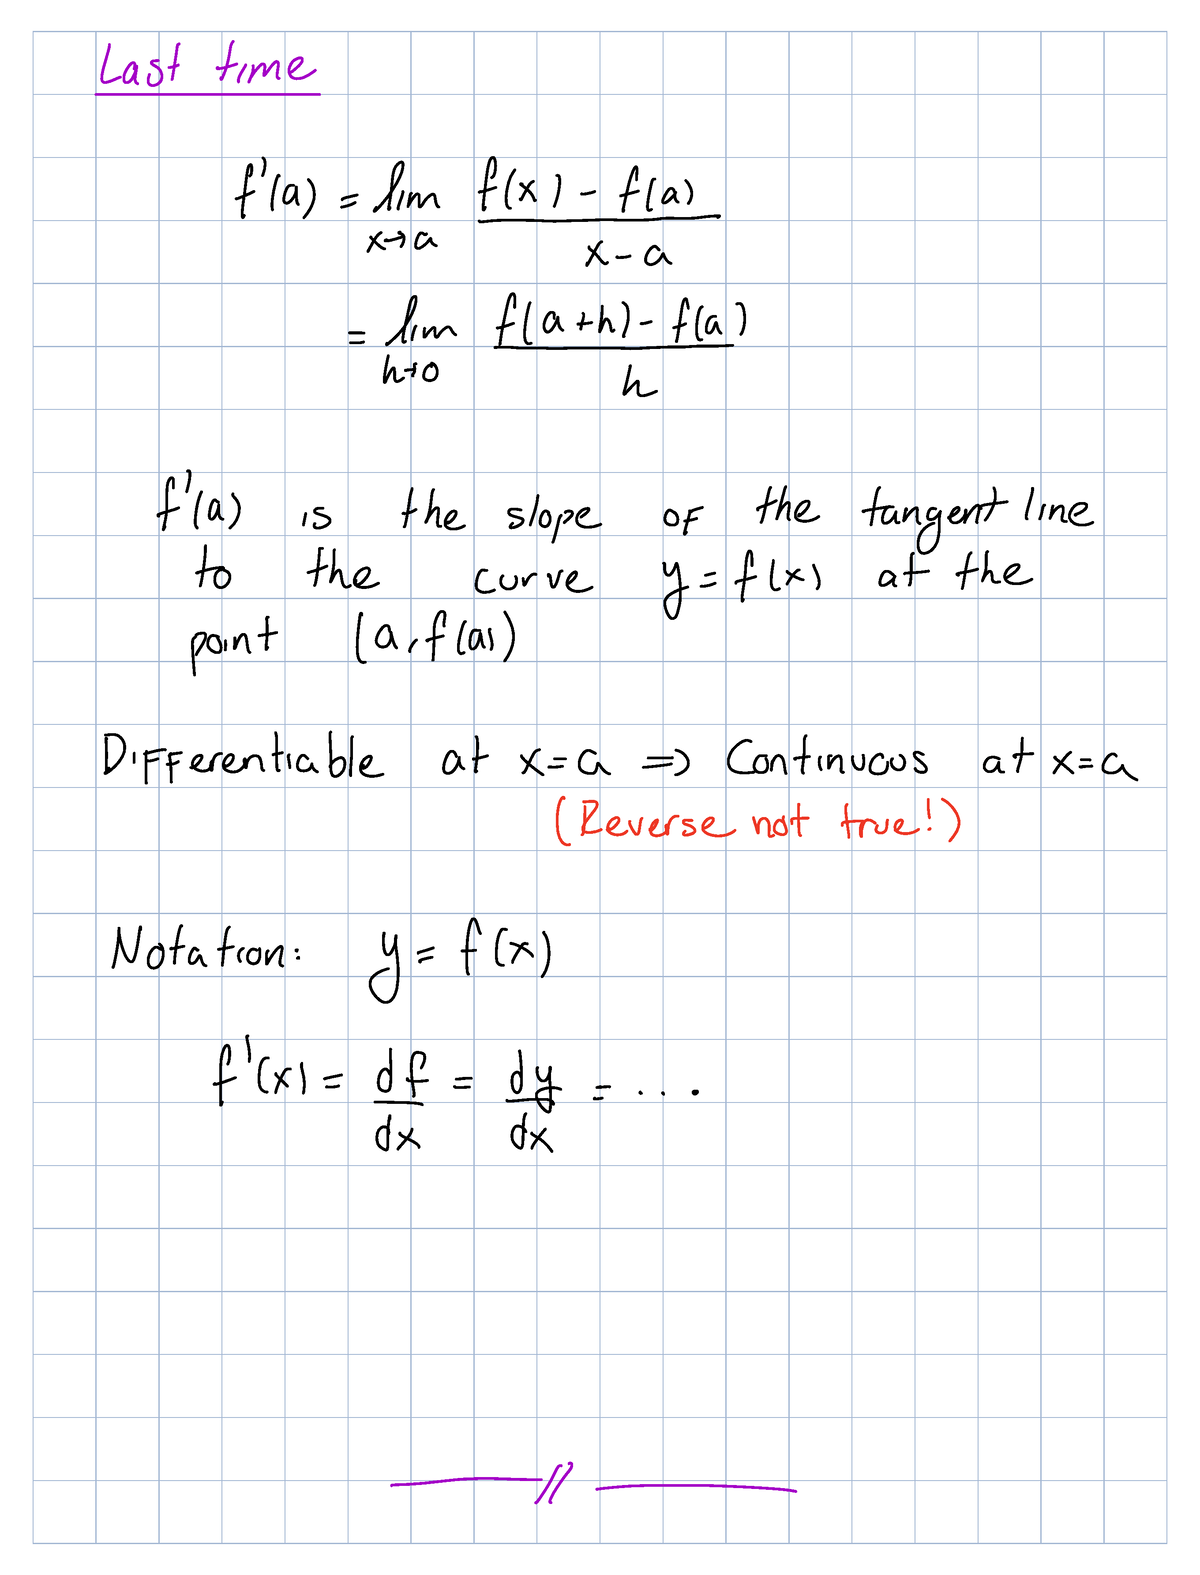 Last time
f'(a) = lim x→a (f(x) - f(a))/(x - a)
= lim h→0 (f(a+h) - f(a))/h
f'(a) is the slope of the tangent line
to the curve y = f(x) at the
point (a, f(a))
Differentiable at x=a ⇒ Continuous at x=a
(Reverse not true!)
Notation: y = f(x)
f'(x) = df/dx = dy/dx = ...